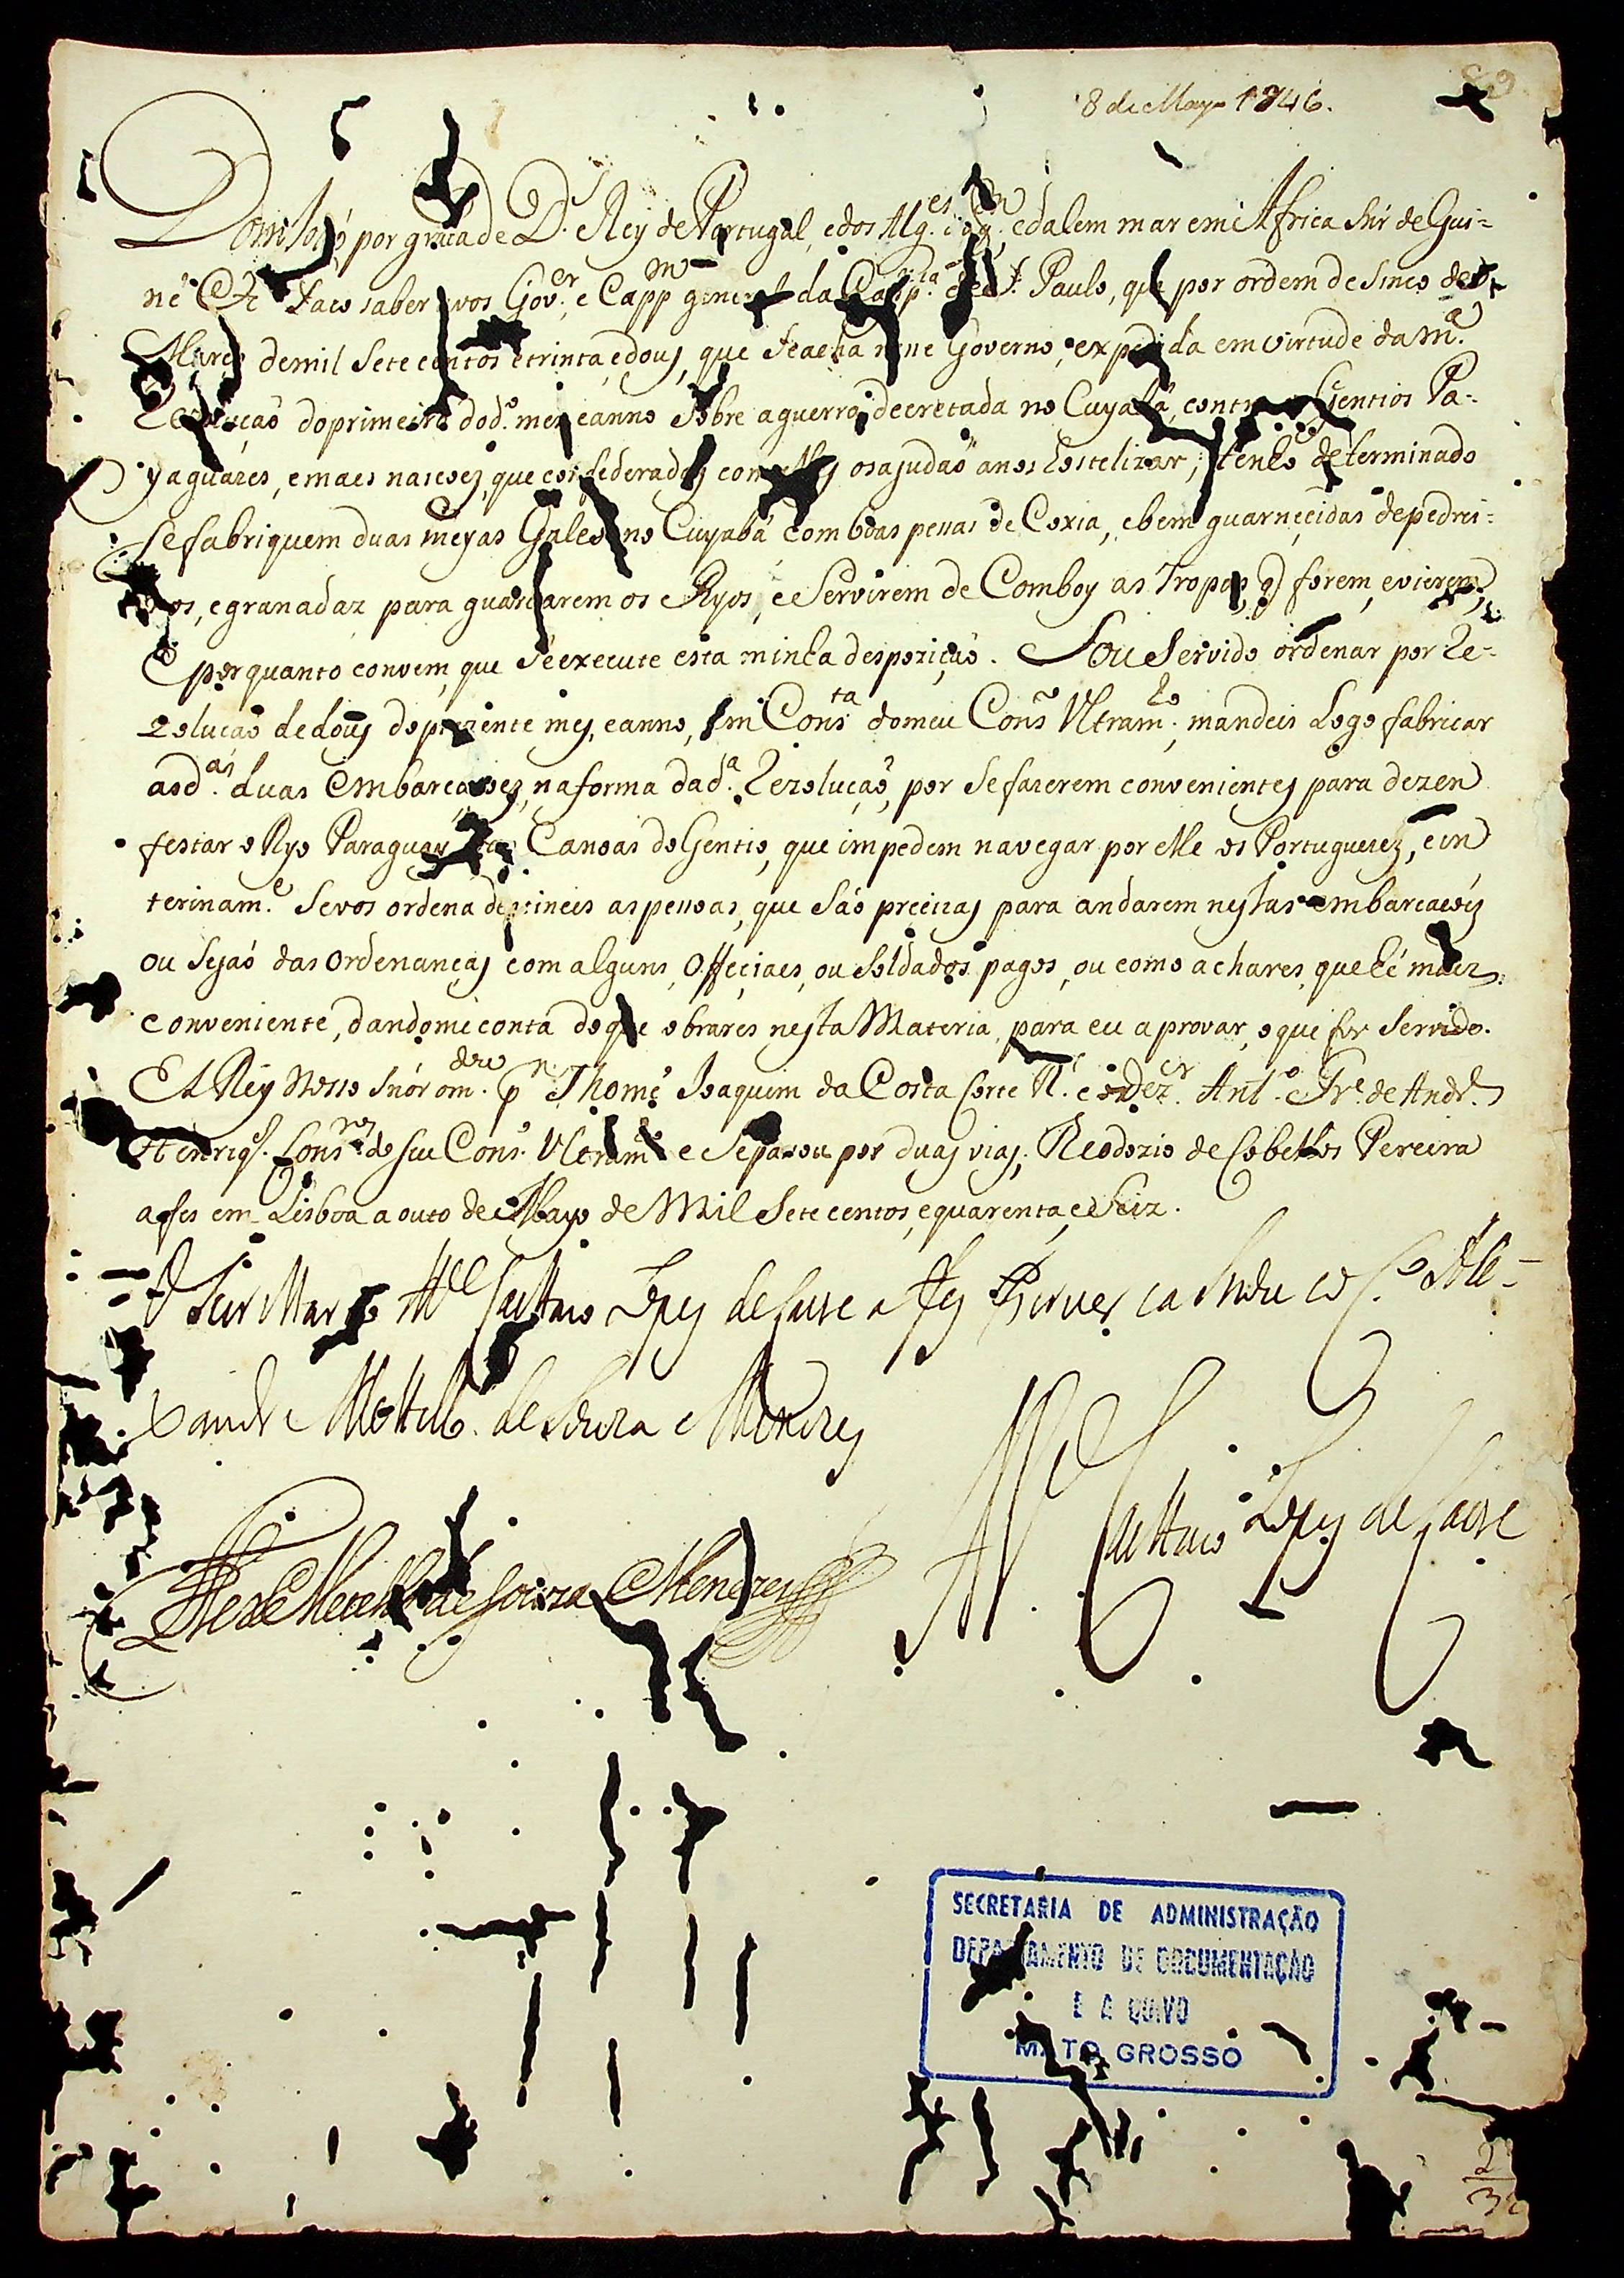 8 de Mayo 1746.
Dom João por graça de D.s Rey de Portugal, e dos Alg.es daq.m edalem mar em Africa Snr de Gui=
né &c Faço saber avos Gov.or e Capp.m general da Capp.nia de S. Paulo, que por ordem de sinco de
Março demil Sete centos etrinta, edous, que seacha nesse Governo, expedida em virtude da m.a
Rezoluçaõ doprimeiro dod.o mez eanno sobre aguerra decretada no Cuyabá, contra Gentios Pa=
yaguazes, emaes nascoez, que confederadas com elles osajudaõ anos hostelizar, tenho determinado
sefabriquem duas meyas Galés no Cuyabá com boas pessas de Coxia, ebem guarnecidas depedrei=
ros, egranadaz para guardarem os Ryos, e Servirem de Comboy as Tropas, q forem, evierem,
E porquanto convem, que seexecute esta minha despoziçaõ. Sou Servido ordenar por Re=
zoluçaõ dedous doprezente mes, eanno, em Cons.ta domeu Cons.o Ultram.o, mandeis Logo fabricar
asd.as duas Embarcasoez, naforma dad.a Rezoluçaõ, por Sefazerem convenientes para dezen
festar o Ryo Paraguay Canoas doGentio, que impedem navegar por elle os Portuguezez, ein
terinam.e Sevos ordena destineis aspessoas, que Saõ precizas para andarem nestas embarcacoiz
ou sejaõ das Ordenanças com alguns, Offeciaes, ou Soldados pagos, ou como achares, quehé maiz
conveniente, dandome conta doque obrares nesta Materia, para eu aprovar, oque for Servido.
El Rey Nosso Snór om.dou p Thomé Joaquim da Costa Corte R.l e oDez.or Ant.o Fr.e de Andr.e
Henriq.s Cons.ros do Seu Cons.o Ultram.o e Sepasou por duas vias. Theodozio de Cobellos Pereira
afes em Lisboa a outo de Mayo de Mil Sete centos, equarenta, eSeiz.
M.el Caettano Lopes de Lavre a fes escrever
xandre Metello de Souza e Menezes
M.el Caettano Lopes de Lavre
Alex.e Metello de Souza e Menezes
SECRETARIA DE ADMINISTRAÇÃO
DEPARTAMENTO DE DOCUMENTAÇÃO
E ARQUIVO
MATO GROSSO